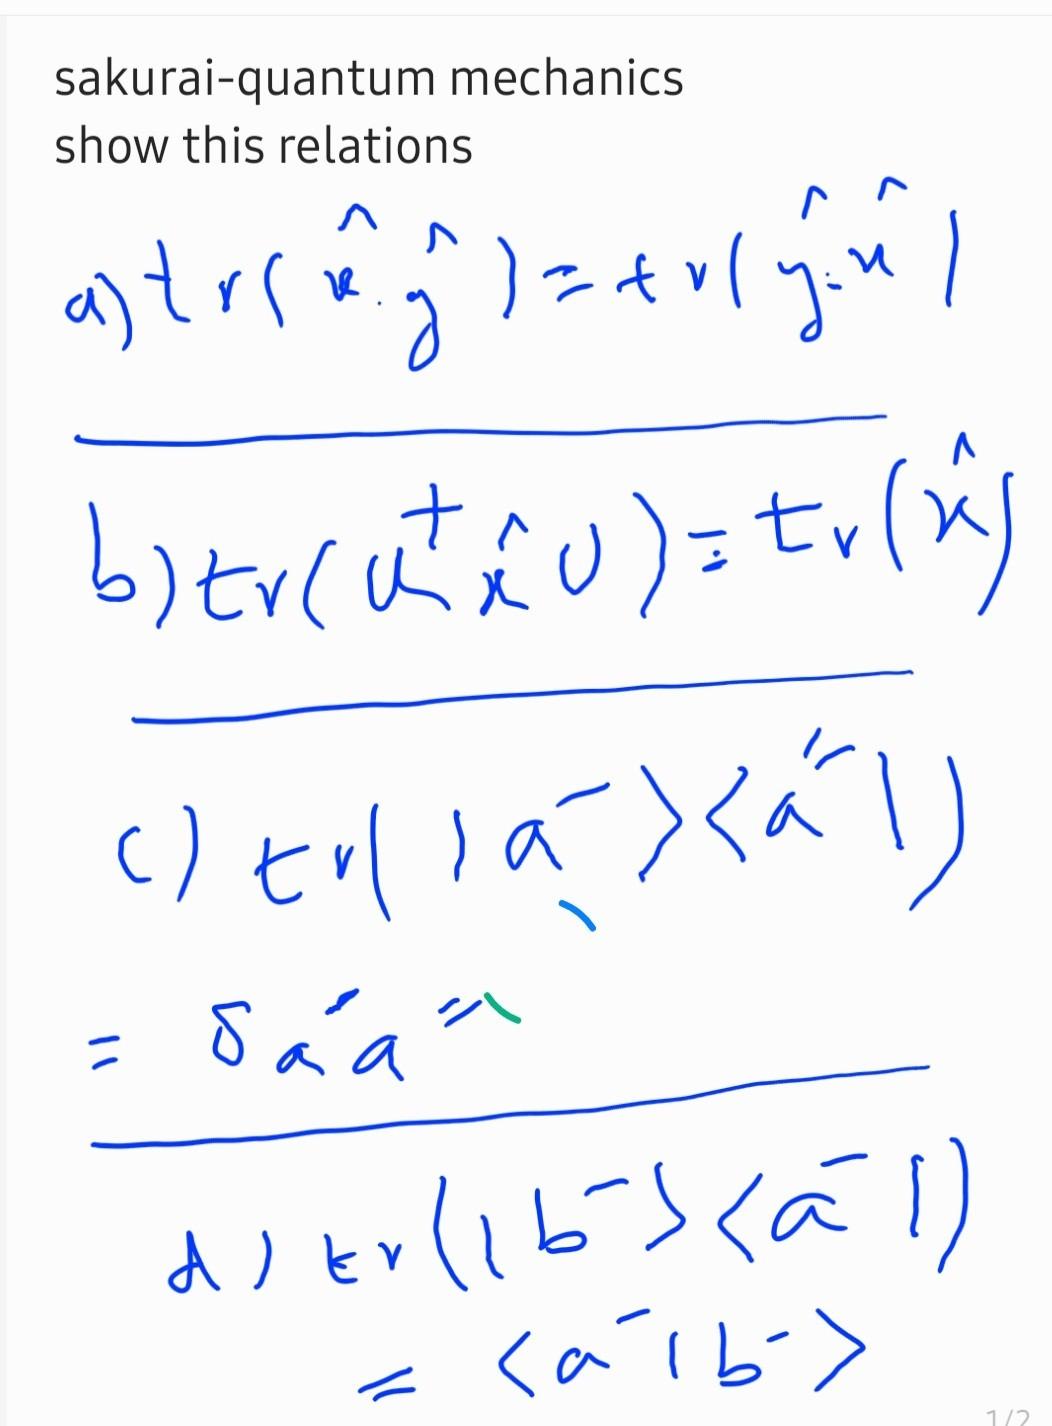 sakurai-quantum mechanics
show this relations
a) tr( x̂ . ŷ ) = tr( ŷ . x̂ )
b) tr( U† x̂ U ) = tr( x̂ )
c) tr( |a′><a″| )
= δ a′a″
d) tr( |b′><a′| )
= <a′|b′>
1/2